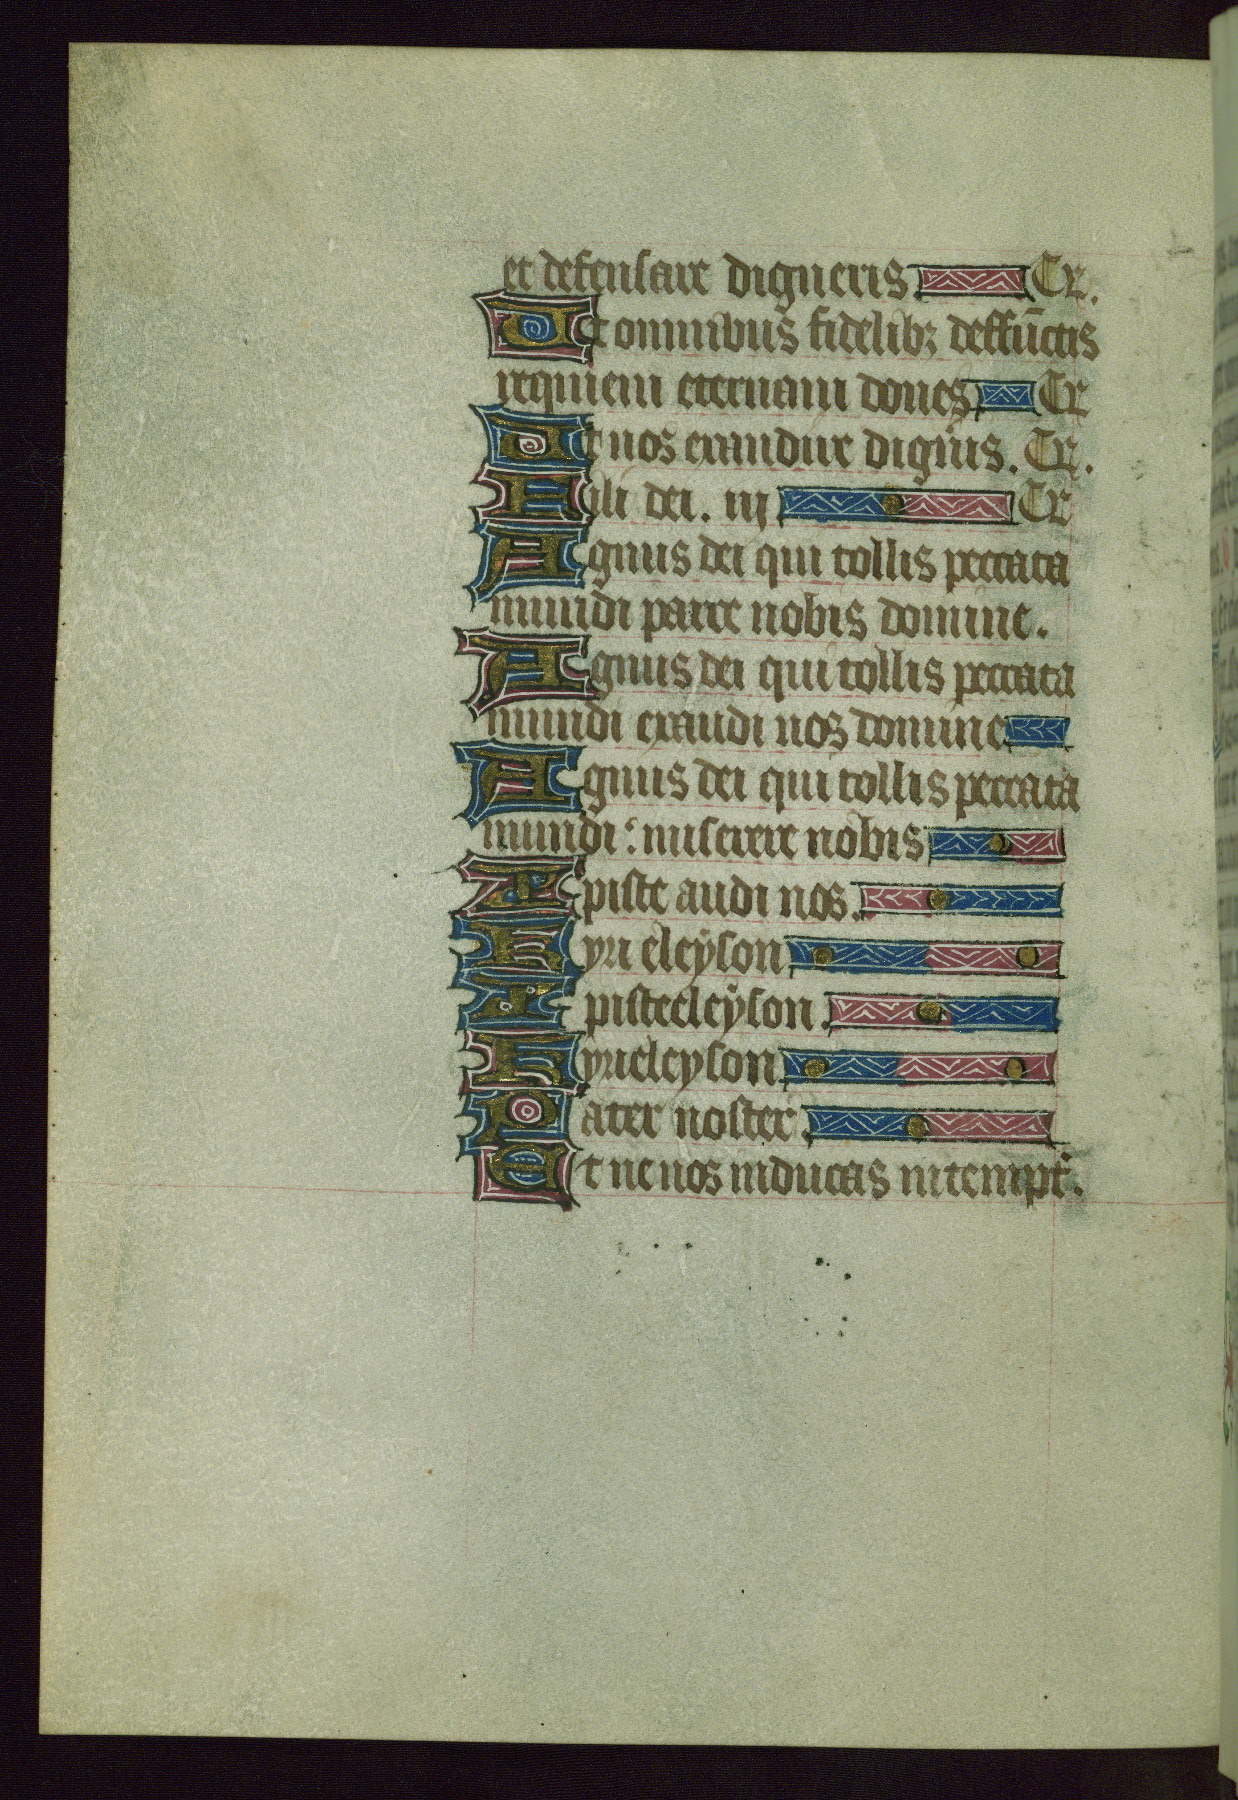 et defensare digneris Tr.
Ut omnibus fidelib; deffūctis
requiem eternam dones Tr
Ut nos exaudire dign̄is. Tr.
Fili dei. iij Tr
Agnus dei qui tollis peccata
mundi parce nobis domine.
Agnus dei qui tollis peccata
mundi exaudi nos domine
Agnus dei qui tollis peccata
mundi: miserere nobis
Xpiste audi nos.
Kyri eleyson
Xpisteeleyson.
Kyrieleyson
Pater noster.
Et ne nos inducas in tempt̄.